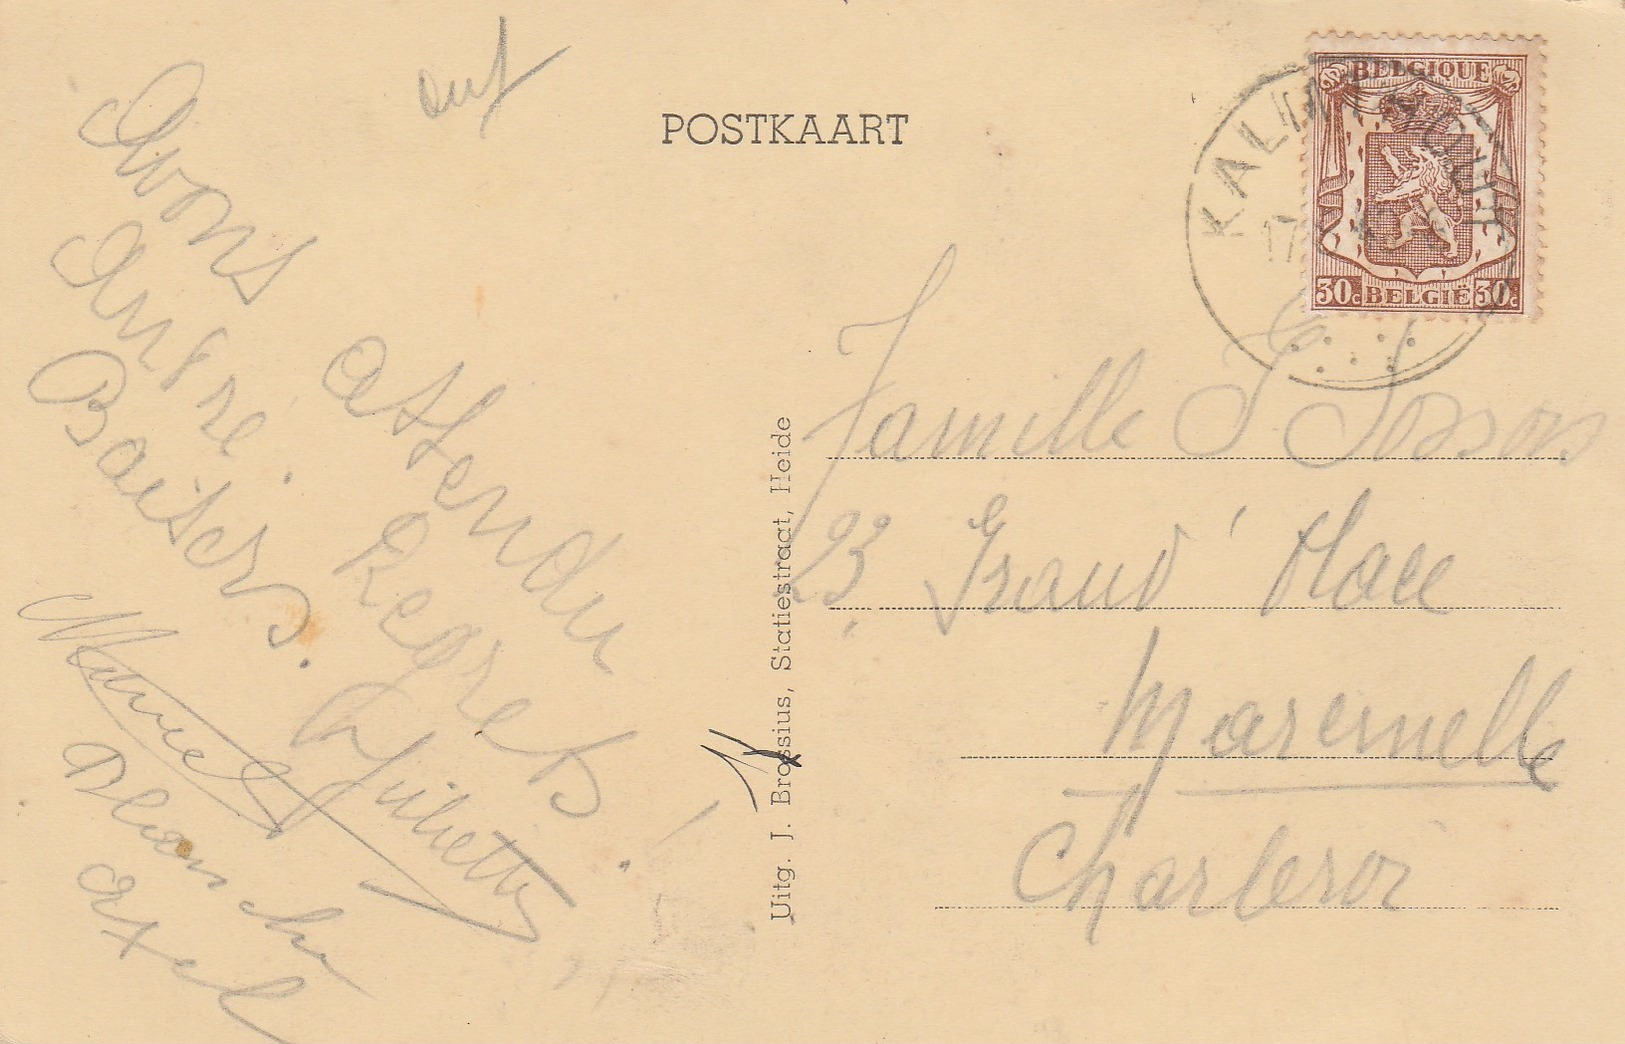 POSTKAART
BELGIQUE
30c BELGIË 30c
KALM
17
Avons attendu
André. Regrets!
Baisers. Juliette
Marcel
Blanche
Axel
Uitg. J. Brossius, Statiestraat, Heide
Famille J Josson
23, Grand' Place
Marcinelle
Charleroi